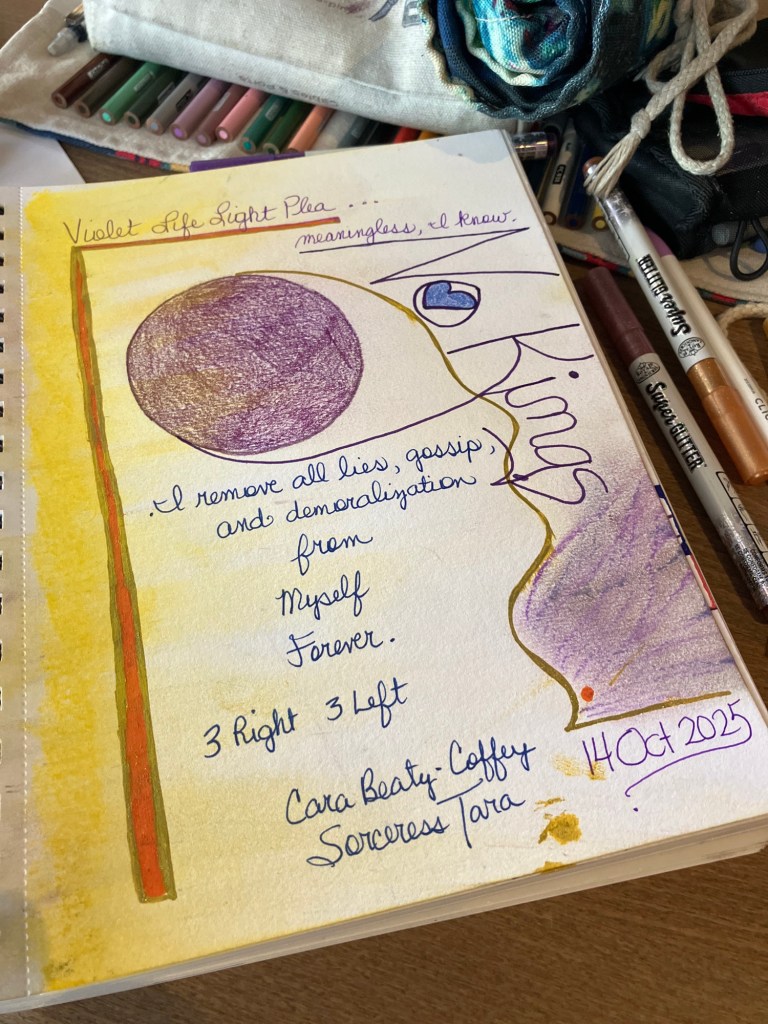 Violet Life Light Plea ...
meaningless, I know.
No
Kings
.I remove all lies, gossip,
and demoralization
from
Myself
Forever.
3 Right 3 Left
Cara Beaty-Coffey
Sorceress Tara
14 Oct 2025
Super GLITTER
Super GLITTER